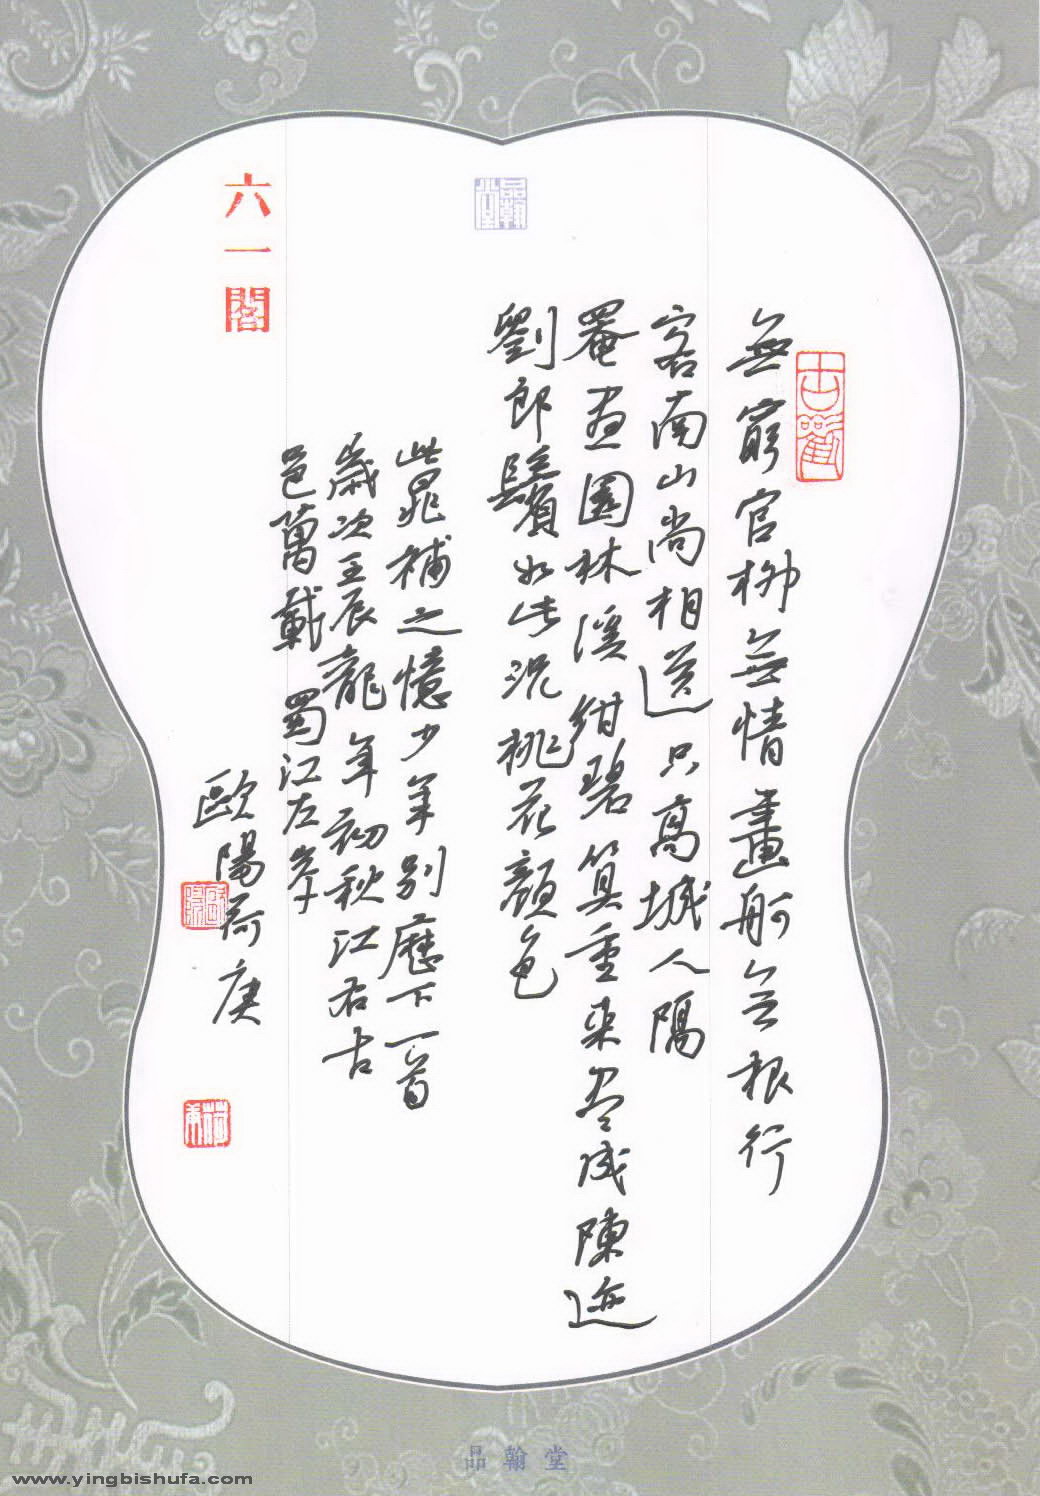 古歡
無窮官柳無情畫舸無根行
客南山尚相送只高城人隔
罨画園林溪紺碧算重来尽成陳迹
劉郎鬢如此況桃花顏色
此晁補之憶少年別歷下一首
歲次壬辰龍年初秋江右古
邑萬載 蜀江左岸
歐陽荷庚
歐陽
荷庚
品翰堂
六一閣
品翰堂
www.yingbishufa.com